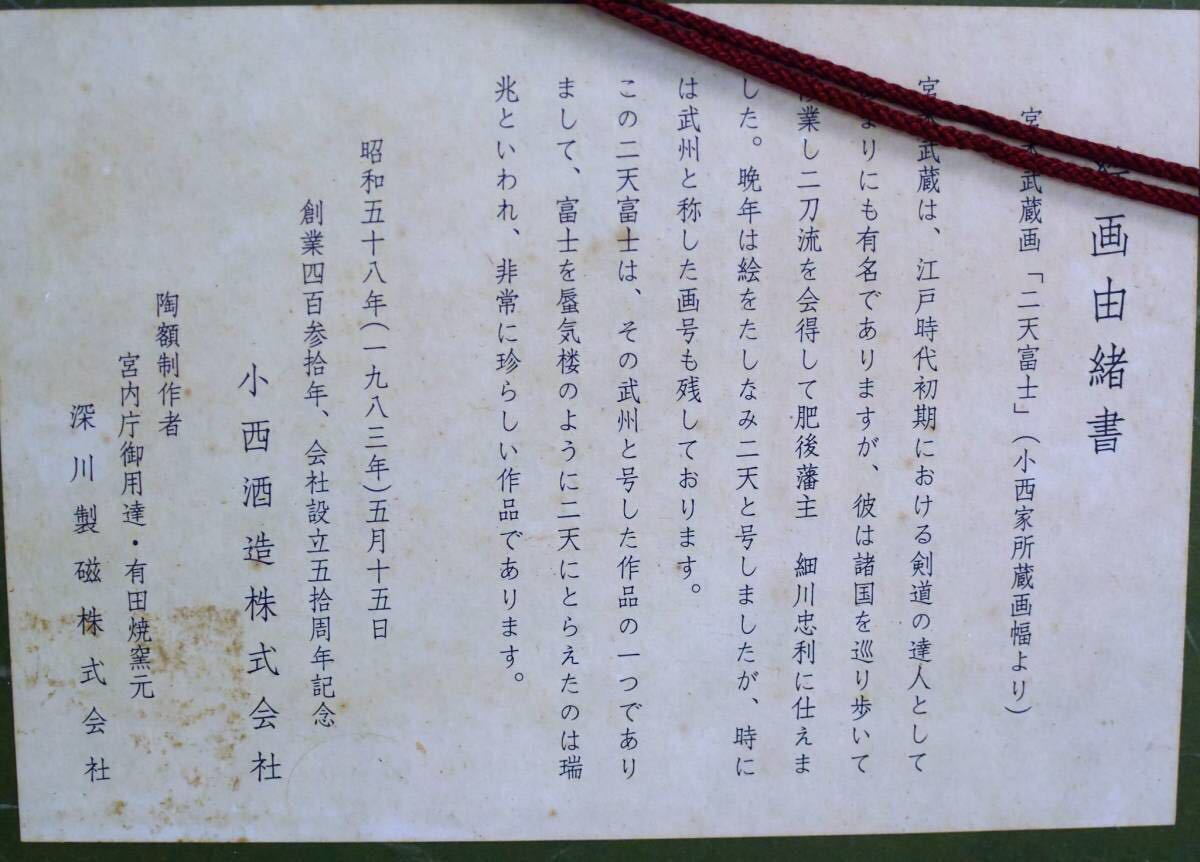 画由緒書
宮本武蔵画「二天富士」(小西家所蔵画幅より)
宮本武蔵は、江戸時代初期における剣道の達人として
まりにも有名でありますが、彼は諸国を巡り歩いて
修業し二刀流を会得して肥後藩主 細川忠利に仕えま
した。晩年は絵をたしなみ二天と号しましたが、時に
は武州と称した画号も残しております。
この二天富士は、その武州と号した作品の一つであり
まして、富士を蜃気楼のように二天にとらえたのは瑞
兆といわれ、非常に珍らしい作品であります。
昭和五十八年(一九八三年)五月十五日
創業四百参拾年、会社設立五拾周年記念
小西酒造株式会社
陶額制作者
宮内庁御用達・有田焼窯元
深川製磁株式会社